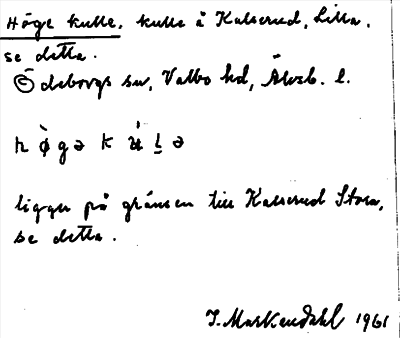 Höge kulle. kulle å Kalserud, Lilla,
se detta.
Ödeborgs sn, Valbo hd, Älvsb. l.
h ø̀ g ə k ú l̲ ə
ligger på gränsen till Kalserud Stora,
se detta.
I. Markendahl 1961